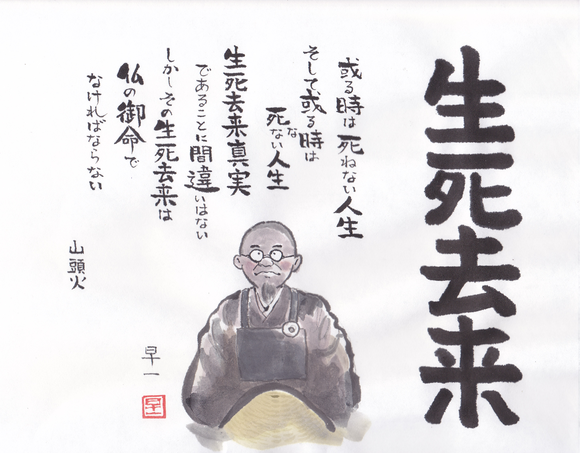 生死去来
或る時は死ねない人生
そして或る時は
死なない人生
な
生死去来真実
であることに間違いはない
しかしその生死去来は
仏の御命で
なければならない
山頭火
早一